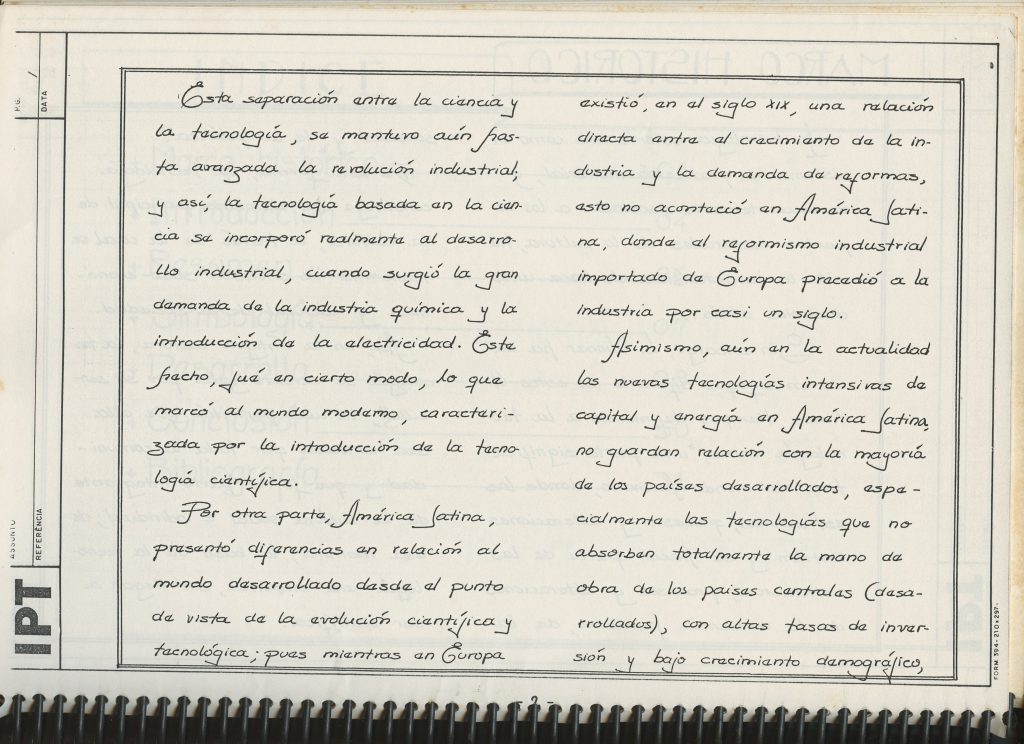 Esta separación entre la ciencia y
la tecnología, se mantuvo aún has-
ta avanzada la revolución industrial,
y así, la tecnología basada en la cien-
cia se incorporó realmente al desarro-
llo industrial, cuando surgió la gran
demanda de la industria química y la
introducción de la electricidad. Este
hecho, fué en cierto modo, lo que
marcó al mundo moderno, caracteri-
zada por la introducción de la tecno-
logía científica.
Por otra parte, América latina,
presentó diferencias en relación al
mundo desarrollado desde el punto
de vista de la evolución científica y
tecnológica; pues mientras en Europa
existió, en el siglo XIX, una relación
directa entre el crecimiento de la in-
dustria y la demanda de reformas,
esto no aconteció en América lati-
na, donde el reformismo industrial
importado de Europa precedió a la
industria por casi un siglo.
Asimismo, aún en la actualidad
las nuevas tecnologías intensivas de
capital y energía en América latina,
no guardan relación con la mayoría
de los países desarrollados, espe-
cialmente las tecnologías que no
absorben totalmente la mano de
obra de los paises centrales (desa-
rrollados), con altas tasas de inver-
sión y bajo crecimiento demográfico,
PG. /
DATA
ASSUNTO
REFERÊNCIA
IPT
FORM. 394-210x297-